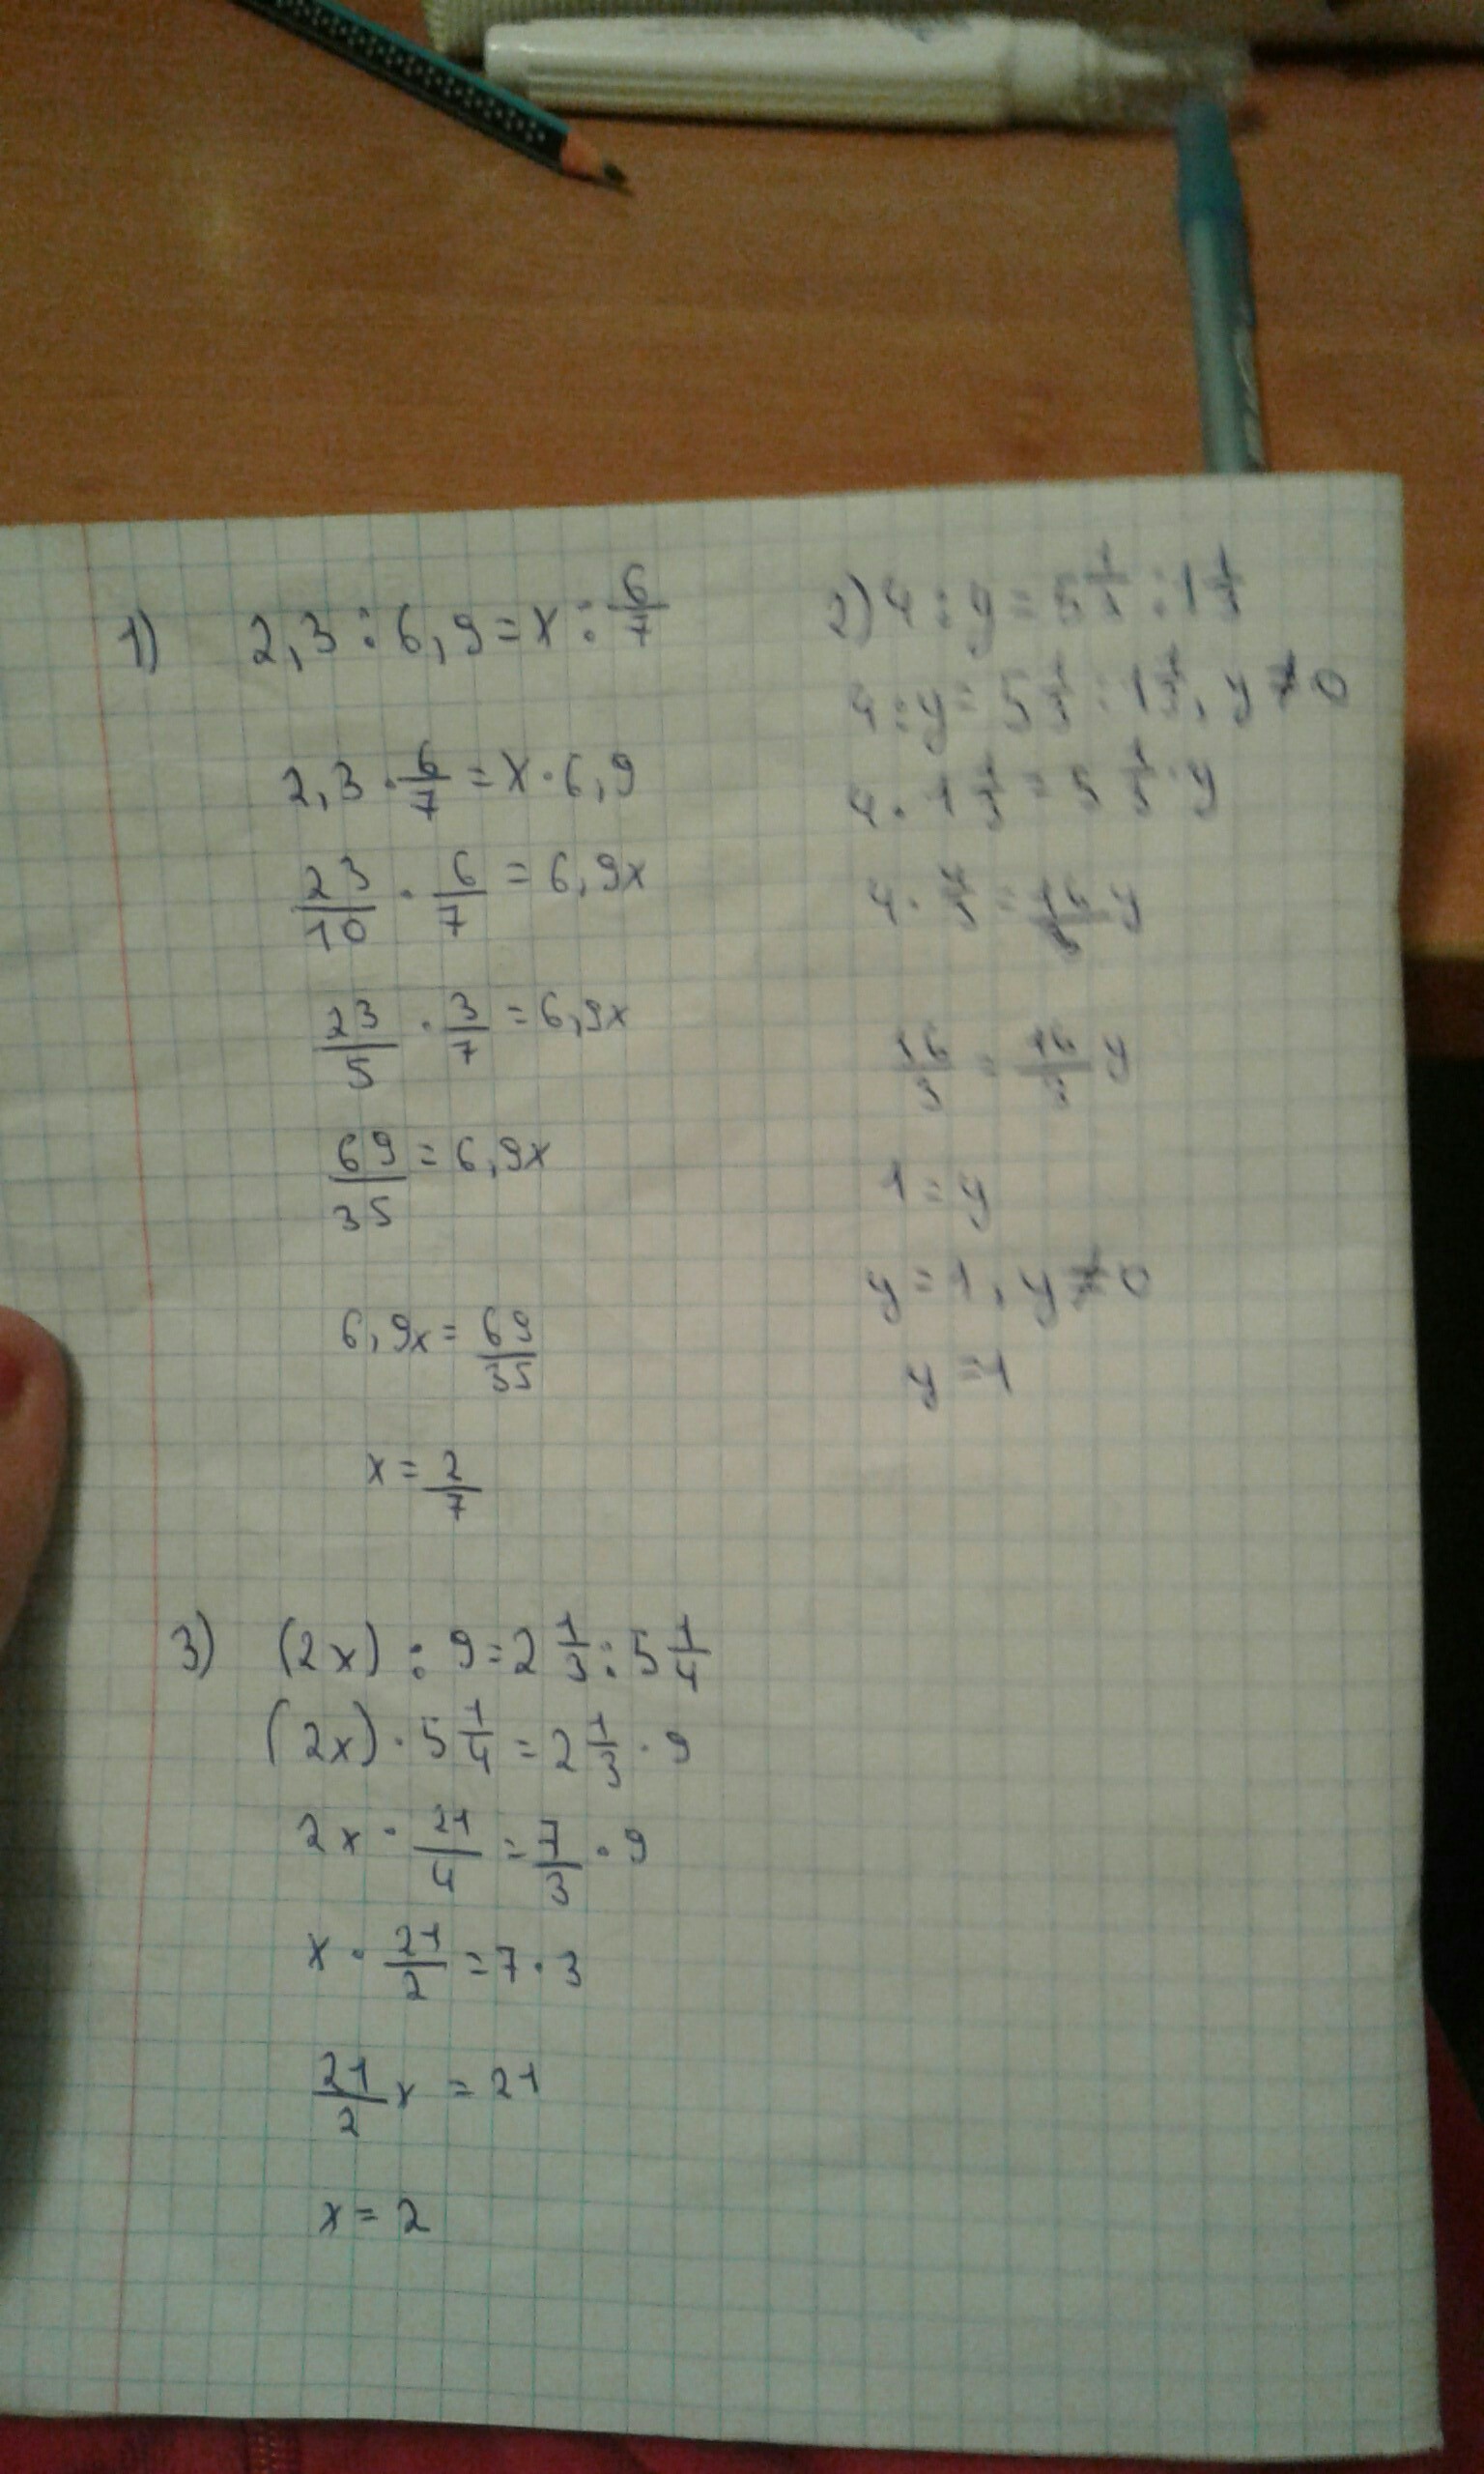 1) 2,3 : 6,9 = x : 6/7
2,3 · 6/7 = x · 6,9
23/10 · 6/7 = 6,9x
23/5 · 3/7 = 6,9x
69/35 = 6,9x
6,9x = 69/35
x = 2/7
2) 4 : y = 5 1/3 : 1 1/3
4 : y = 5 1/3 : 1 1/3, y ≠ 0
4 · 1 1/3 = 5 1/3 · y
4 · 4/3 = 16/3 y
16/3 = 16/3 y
1 = y
y = 1, y ≠ 0
y = 1
3) (2x) : 9 = 2 1/3 : 5 1/4
(2x) · 5 1/4 = 2 1/3 · 9
2x · 21/4 = 7/3 · 9
x · 21/2 = 7 · 3
21/2 x = 21
x = 2